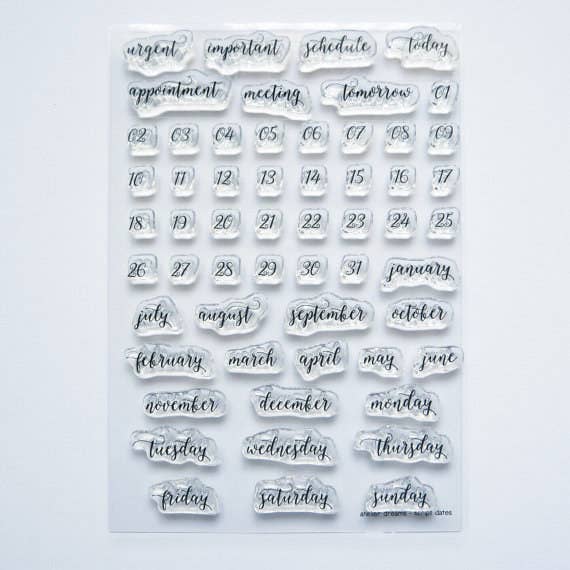 urgent important schedule today
appointment meeting tomorrow 01
02 03 04 05 06 07 08 09
10 11 12 13 14 15 16 17
18 19 20 21 22 23 24 25
26 27 28 29 30 31 january
july august september october
february march april may june
november december monday
tuesday wednesday thursday
friday saturday sunday
atelier dreams - script dates